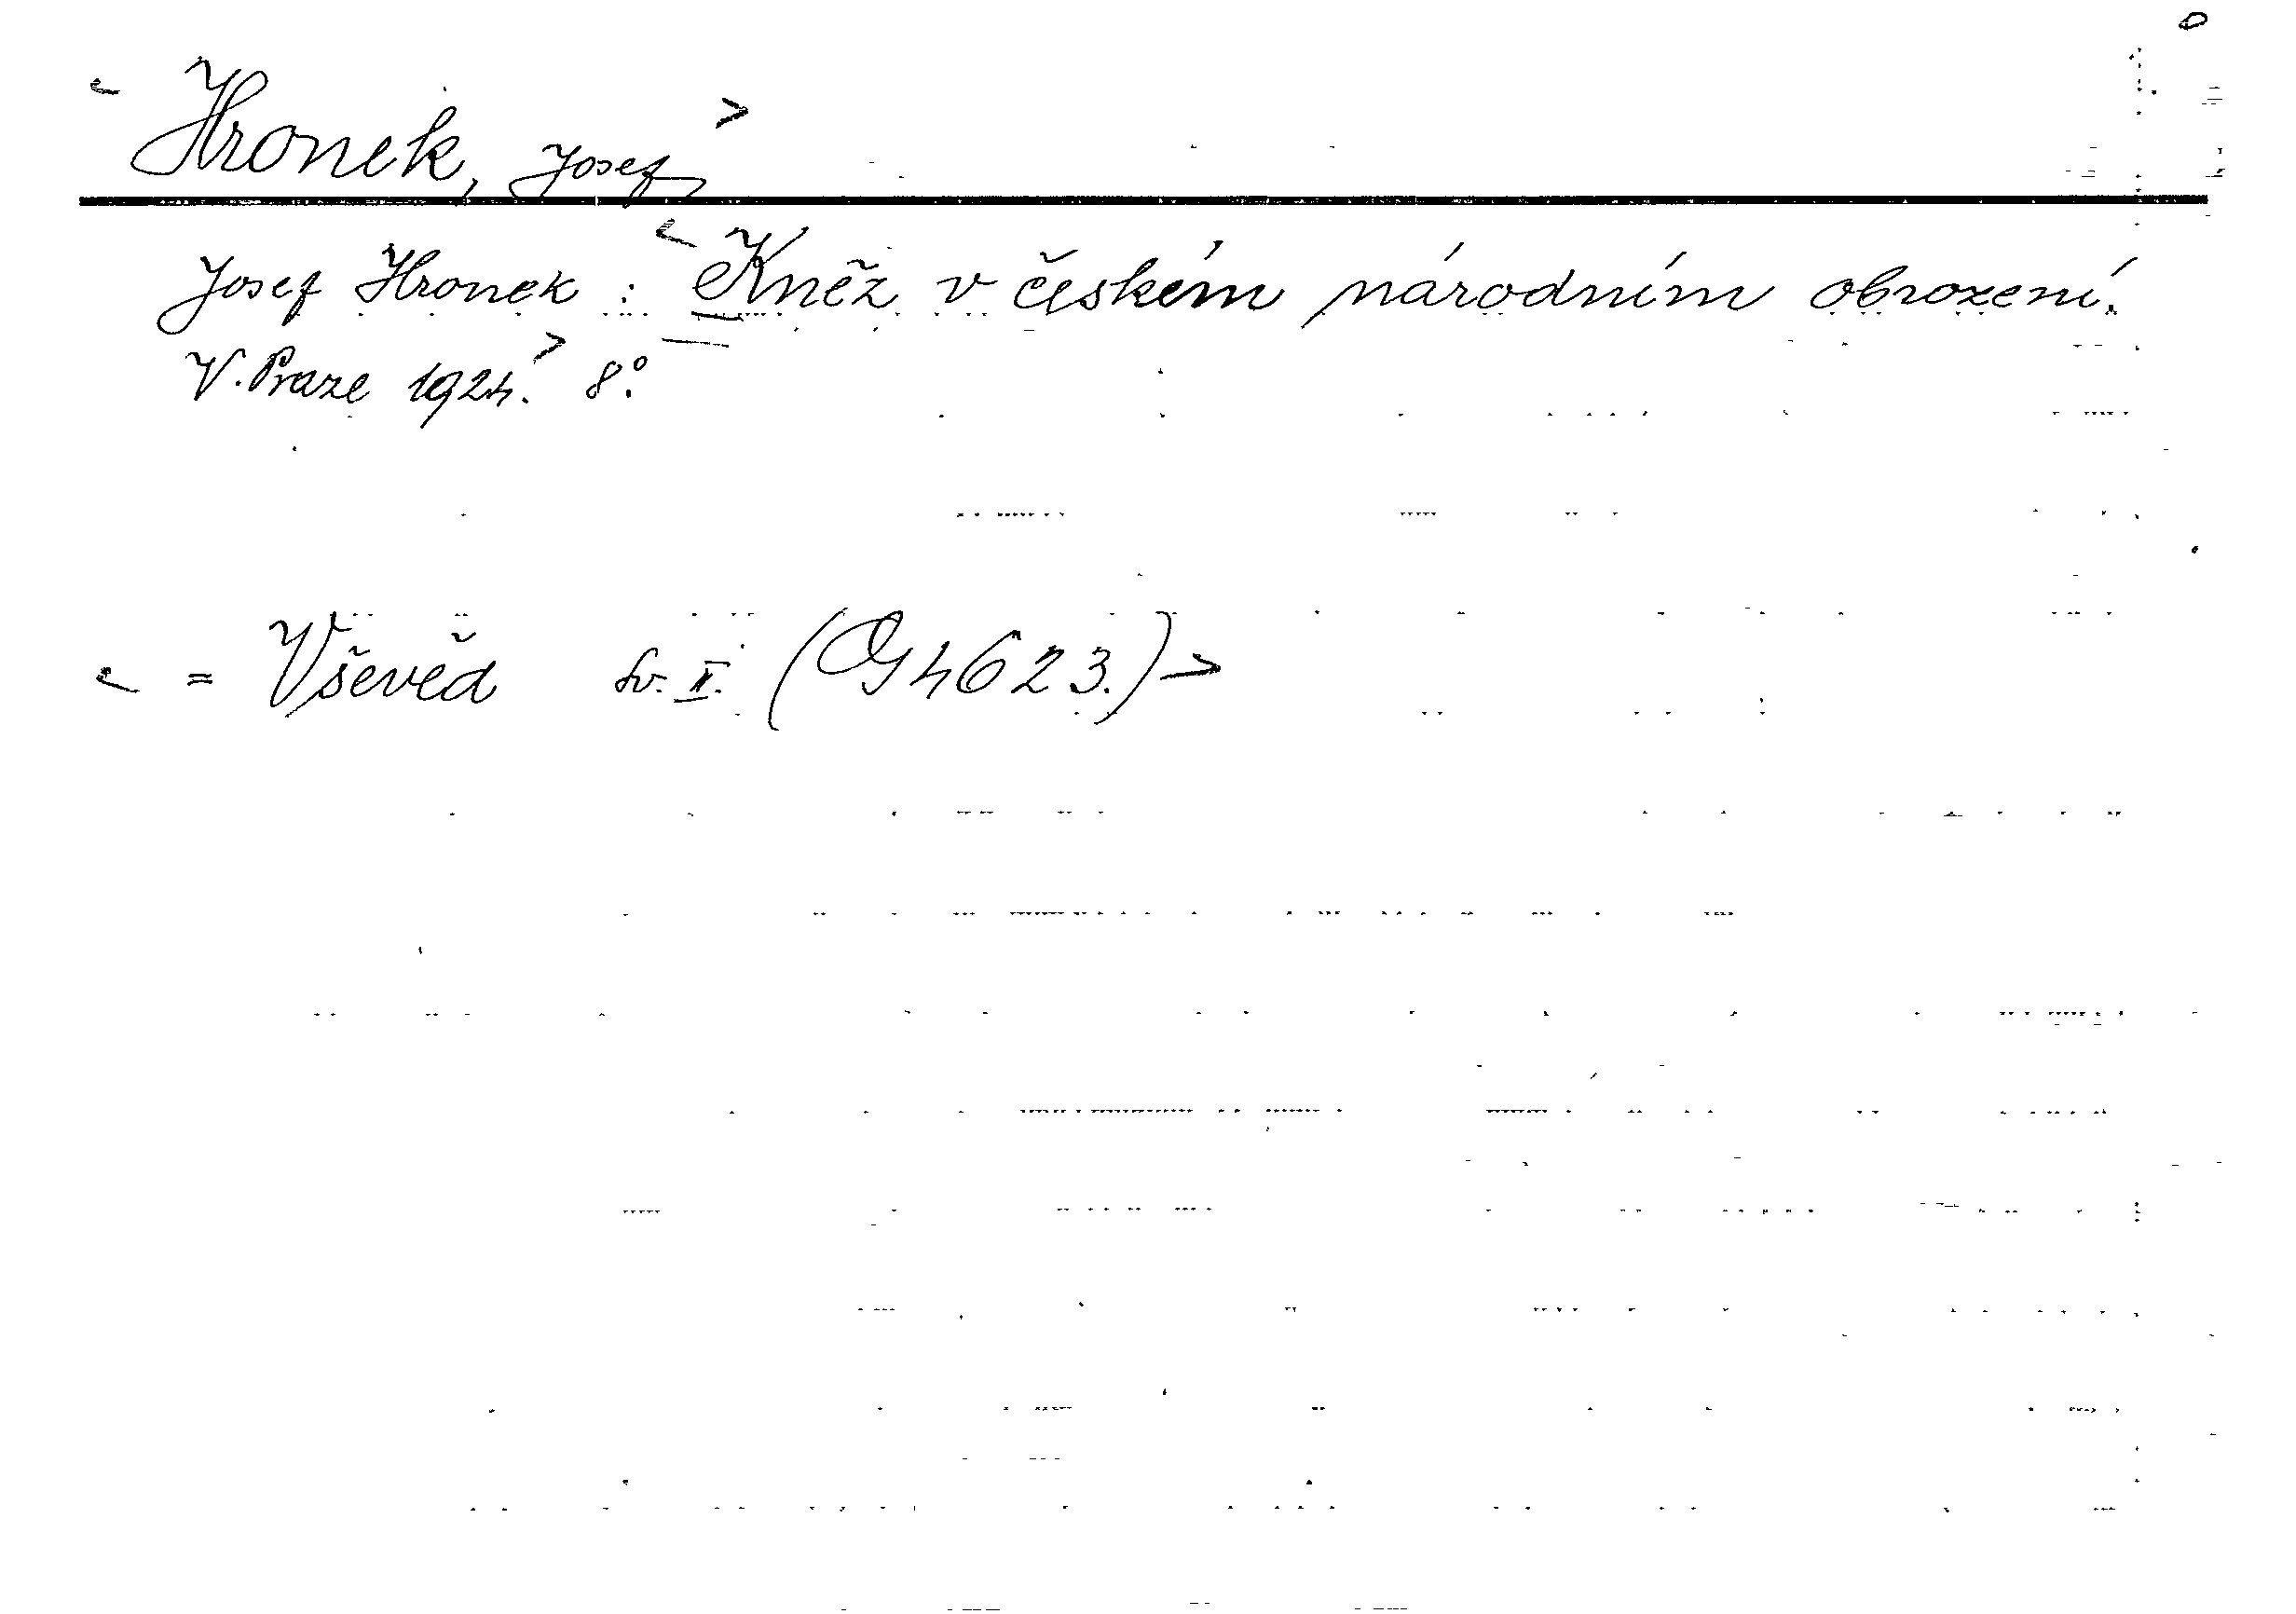 < Hronek, Josef >
Josef Hronek : < Kněz v českém národním obrození.
V Praze 1924. > 8°.
< = Vševěd sv. II. (Og 4623.) >